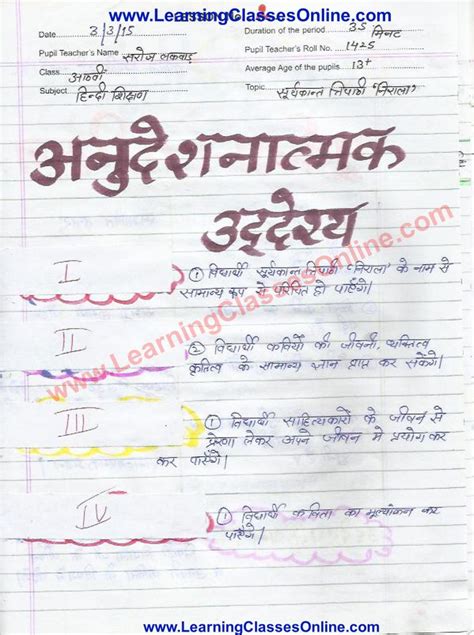 www.LearningClassesOnline.com
Date 3/3/15 Duration of the period 35 मिनट
Pupil Teacher's Name सरोज लकवाड Pupil Teacher's Roll No. 1425
Class आठवीं Average Age of the pupils 13+
Subject हिन्दी शिक्षण Topic सूर्यकान्त त्रिपाठी 'निराला'
अनुदेशनात्मक
उद्देश्य
I ① विद्यार्थी सूर्यकान्त त्रिपाठी 'निराला' के नाम से
सामान्य रूप से परिचित हो पाएँगे।
II ② विद्यार्थी कवियों की जीवनी, व्यक्तित्व
कृतित्व के सामान्य ज्ञान प्राप्त कर सकेंगे।
III ① विद्यार्थी साहित्यकारों के जीवन से
प्रेरणा लेकर अपने जीवन मे प्रयोग कर
कर पाएँगे।
IV ① विद्यार्थी कविता का मूल्यांकन कर
पाएँगे।
www.LearningClassesOnline.com
www.LearningClassesOnline.com